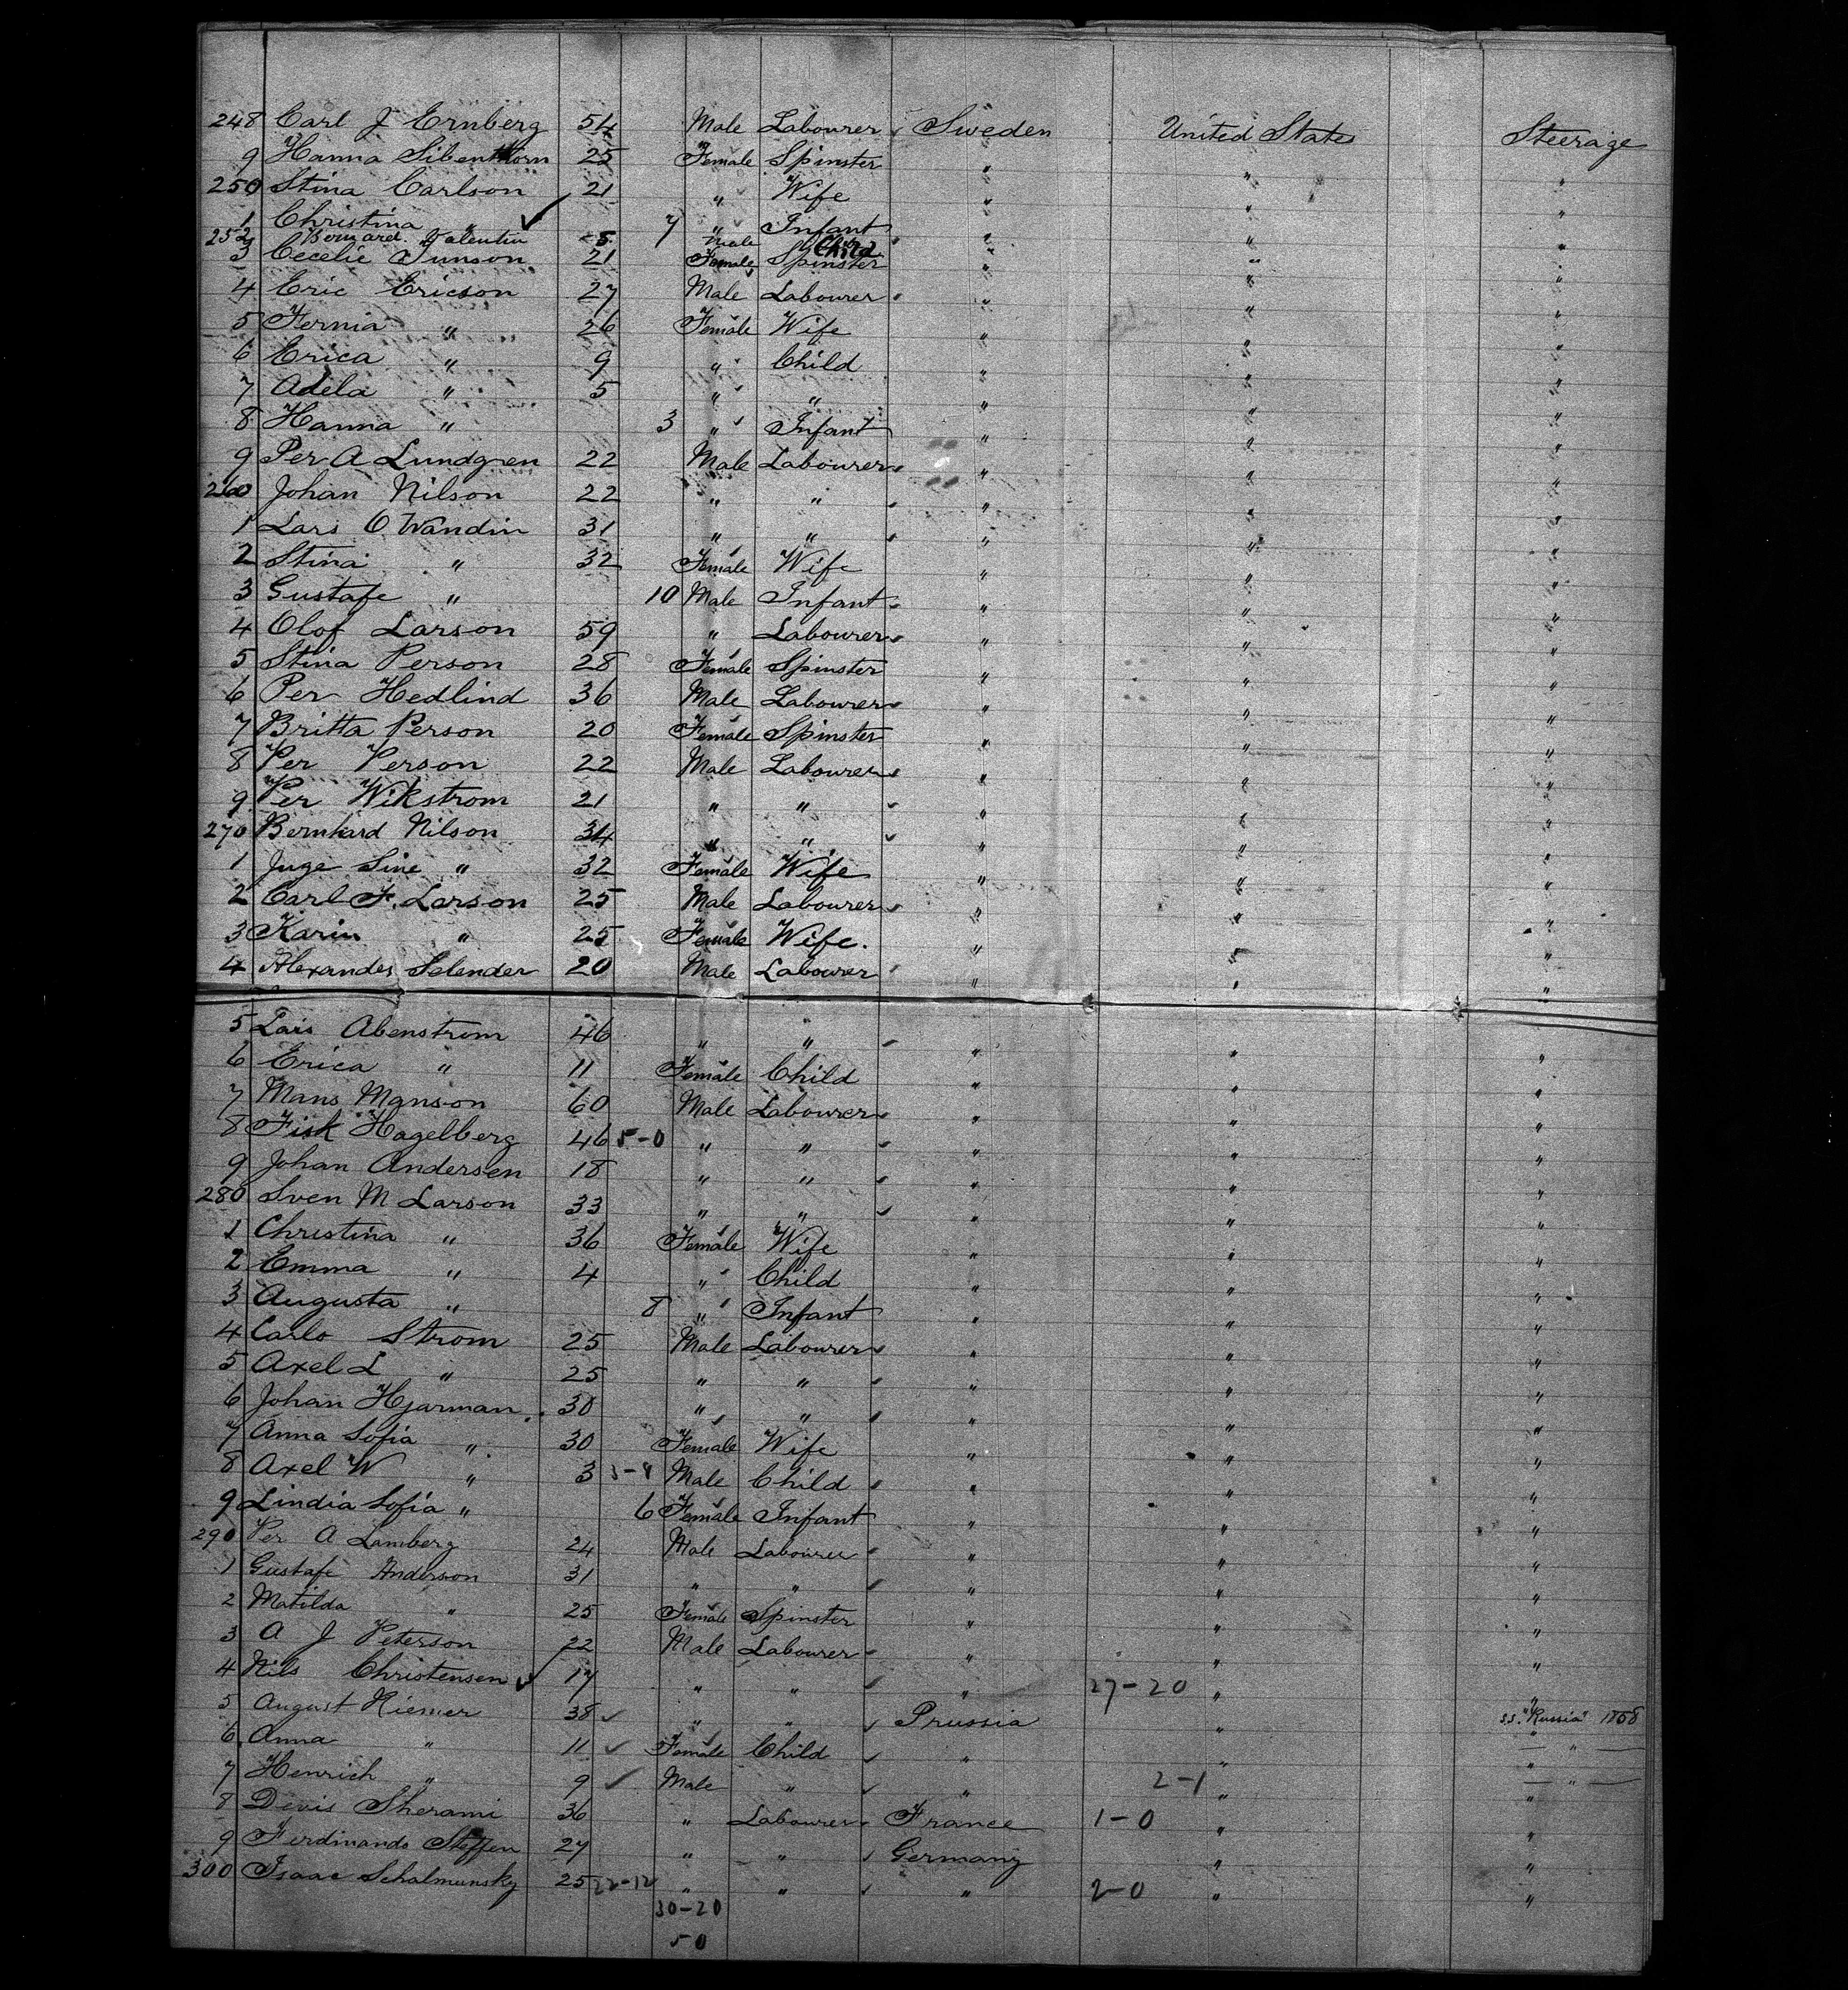 248 Carl J Ernberg 54 Male Labourer Sweden United States Steerage
9 Hanna 25 Female Spinster " " "
250 Stina Carlson 21 " Wife " " "
1 Christina " 7 " Infant " " "
252 Bernard Valentin 5 Male Child " " "
3 Cecelie 21 Female Spinster " " "
4 Eric Ericson 27 Male Labourer " " "
5 Fernia " 26 Female Wife " " "
6 Erica " 9 " Child " " "
7 Adela " 5 " " " " "
8 Hanna " 3 " Infant " " "
9 Per A Lundgren 22 Male Labourer " " "
260 Johan Nilson 22 " " " " "
1 Lars O Wandin 31 " " " " "
2 Stina " 32 Female Wife " " "
3 Gustafe " 10 Male Infant " " "
4 Olof Larson 59 " Labourer " " "
5 Stina Person 28 Female Spinster " " "
6 Per Hedlind 36 Male Labourer " " "
7 Britta Person 20 Female Spinster " " "
8 Per Person 22 Male Labourer " " "
9 Per Wikstrom 21 " " " " "
270 Bernhard Nilson 34 " " " " "
1 Juge Sine " 32 Female Wife " " "
2 Carl F. Larson 25 Male Labourer " " "
3 Karin " 25 Female Wife. " " "
4 Alexander Selender 20 Male Labourer " " "
5 Lars Abenstrom 46 " " " " "
6 Erica " 11 Female Child " " "
7 Mans Manson 60 Male Labourer " " "
8 Fisk Hagelberg 46 5-0 " " " " "
9 Johan Andersen 18 " " " " "
280 Sven M Larson 33 " " " " "
1 Christina " 36 Female Wife " " "
2 Emma " 4 " Child " " "
3 Augusta " 8 " Infant " " "
4 Carlo Strom 25 Male Labourer " " "
5 Axel L " 25 " " " " "
6 Johan Hjarman 30 " " " " "
7 Anna Sofia " 30 Female Wife " " "
8 Axel W " 3 Male Child " " "
9 Lindia Sofia " 6 Female Infant " " "
290 Per A Lamberg 24 Male Labourer " " "
1 Gustafe Anderson 31 " " " " "
2 Matilda " 25 Female Spinster " " "
3 A J Peterson 22 Male Labourer " " "
4 Nils Christensen 17 " " " 27-20 " "
5 August Riemer 38 " " Prussia " " S.S. "Russia" 1858
6 Anna " 11 Female Child " " " — " —
7 Henrich " 9 Male " " 2-1 " " — " —
8 Devis Sherami 36 " Labourer France 1-0 " "
9 Ferdinando Steffen 27 " " Germany " "
300 Isaac Schalmunsky 25 22-12 " " " 2-0 " "
30-20
50